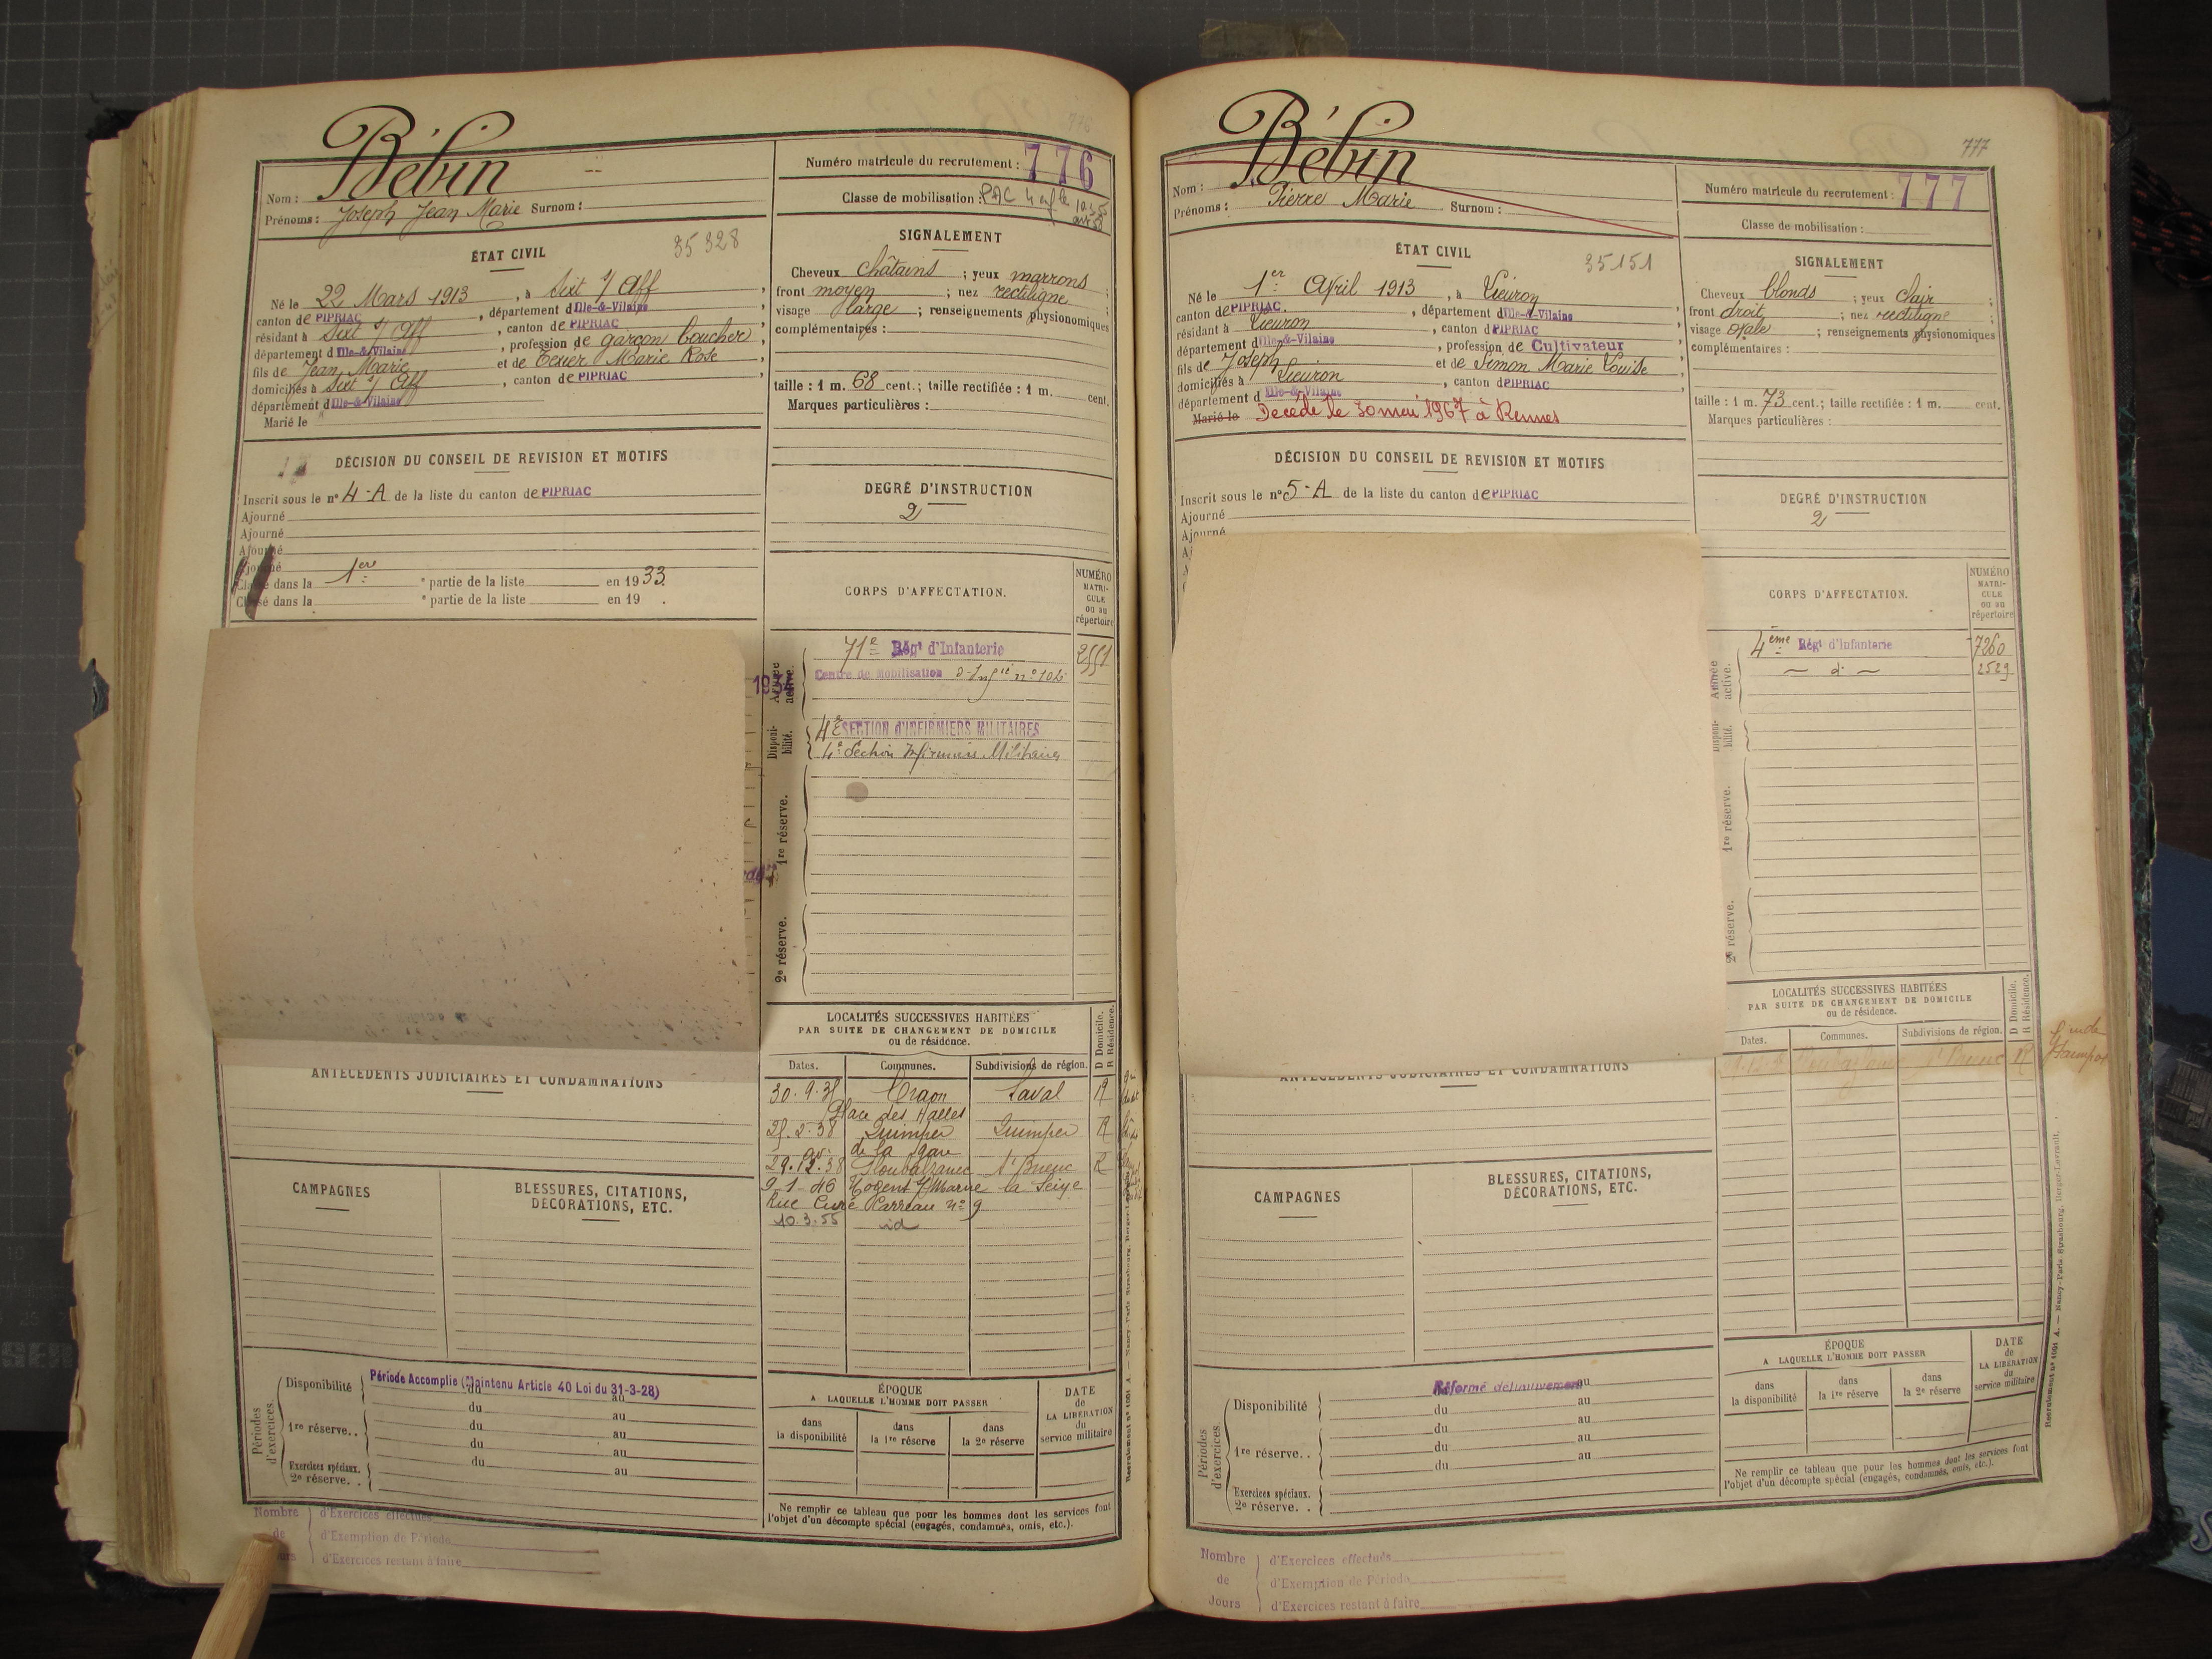 Bébin
Nom :
Prénoms : Joseph Jean Marie Surnom :
Numéro matricule du recrutement : 776
Classe de mobilisation :
ÉTAT CIVIL 35328
Né le 22 Mars 1913, à Sixt s/ Aff,
canton de PIPRIAC, département d Ille-&-Vilaine
résidant à Sixt s/ Aff, canton de PIPRIAC,
département d Ille-&-Vilaine, profession de garçon boucher,
fils de Jean Marie et de Texier Marie Rose,
domiciliés à Sixt s/ Aff, canton de PIPRIAC,
département d Ille-&-Vilaine
Marié le
SIGNALEMENT
Cheveux châtains ; yeux marrons ;
front moyen ; nez rectiligne ;
visage large ; renseignements physionomiques
complémentaires :
taille : 1 m. 68 cent. ; taille rectifiée : 1 m. cent.
Marques particulières :
DÉCISION DU CONSEIL DE REVISION ET MOTIFS
Inscrit sous le n° 4-A de la liste du canton de PIPRIAC
Ajourné
Ajourné
Ajourné
Ajourné
Classé dans la 1ère partie de la liste en 1933.
Classé dans la partie de la liste en 19 .
DEGRÉ D'INSTRUCTION
2
CORPS D'AFFECTATION.
NUMÉRO
MATRI-
CULE
ou au
répertoire
Armée active.
71e Régt d'Infanterie
Centre de Mobilisation d'Infie n° 102
Disponi-
bilité.
4e SECTION d'INFIRMIERS MILITAIRES
4e Section Infirmiers Militaires
1re réserve.
2e réserve.
LOCALITÉS SUCCESSIVES HABITÉES
PAR SUITE DE CHANGEMENT DE DOMICILE
ou de résidence.
D Domicile.
R Résidence.
Dates. Communes. Subdivisions de région.
Craon Laval R
Place des Halles
Quimper Quimper R
de la gare
29.12.38 Ploubalzanec St Brieuc R
9-1-46 Nogent s/ Marne la Seine
Rue Curé Carreau n° 9
10.3.55 id
ANTÉCÉDENTS JUDICIAIRES ET CONDAMNATIONS
CAMPAGNES
BLESSURES, CITATIONS,
DÉCORATIONS, ETC.
Périodes d'exercices.
Disponibilité Période Accomplie (Maintenu Article 40 Loi du 31-3-28)
du au
1re réserve. . du au
du au
du au
Exercices spéciaux. du au
2e réserve. .
ÉPOQUE
A LAQUELLE L'HOMME DOIT PASSER
dans la disponibilité
dans la 1re réserve
dans la 2e réserve
DATE
de
LA LIBÉRATION
du
service militaire
Ne remplir ce tableau que pour les hommes dont les services font
l'objet d'un décompte spécial (engagés, condamnés, omis, etc.).
Nombre d'Exercices effectués
de d'Exemption de Période
d'Exercices restant à faire
777
Bébin
Nom :
Prénoms : Pierre Marie Surnom :
Numéro matricule du recrutement : 777
Classe de mobilisation :
ÉTAT CIVIL 35151
Né le 1er Avril 1913, à Lieuron
canton de PIPRIAC., département d Ille-&-Vilaine
résidant à Lieuron, canton d PIPRIAC
département d Ille-&-Vilaine, profession de Cultivateur
fils de Joseph et de Simon Marie Louise
domiciliés à Lieuron, canton d PIPRIAC
département d Ille-&-Vilaine
Marié le Décédé le 30 mai 1967 à Rennes
SIGNALEMENT
Cheveux blonds ; yeux clair ;
front droit ; nez rectiligne ;
visage ovale ; renseignements physionomiques
complémentaires :
taille : 1 m. 73 cent. ; taille rectifiée : 1 m. cent.
Marques particulières :
DÉCISION DU CONSEIL DE REVISION ET MOTIFS
Inscrit sous le n° 5-A de la liste du canton de PIPRIAC
Ajourné
Ajourné
DEGRÉ D'INSTRUCTION
2
CORPS D'AFFECTATION.
NUMÉRO
MATRI-
CULE
ou au
répertoire
Armée active.
4ème Régt d'Infanterie 7260
— d° — 2529
Disponi-
bilité.
1re réserve.
2e réserve.
LOCALITÉS SUCCESSIVES HABITÉES
PAR SUITE DE CHANGEMENT DE DOMICILE
ou de résidence.
D Domicile.
R Résidence.
Dates. Communes. Subdivisions de région.
St Brieuc R
ANTÉCÉDENTS JUDICIAIRES ET CONDAMNATIONS
CAMPAGNES
BLESSURES, CITATIONS,
DÉCORATIONS, ETC.
Périodes d'exercices.
Disponibilité Réformé définitivement au
du au
du au
1re réserve. . du au
du au
Exercices spéciaux.
2e réserve. .
ÉPOQUE
A LAQUELLE L'HOMME DOIT PASSER
dans la disponibilité
dans la 1re réserve
dans la 2e réserve
DATE
de
LA LIBÉRATION
du
service militaire
Ne remplir ce tableau que pour les hommes dont les services font
l'objet d'un décompte spécial (engagés, condamnés, omis, etc.).
Nombre d'Exercices effectués
de d'Exemption de Période
Jours d'Exercices restant à faire